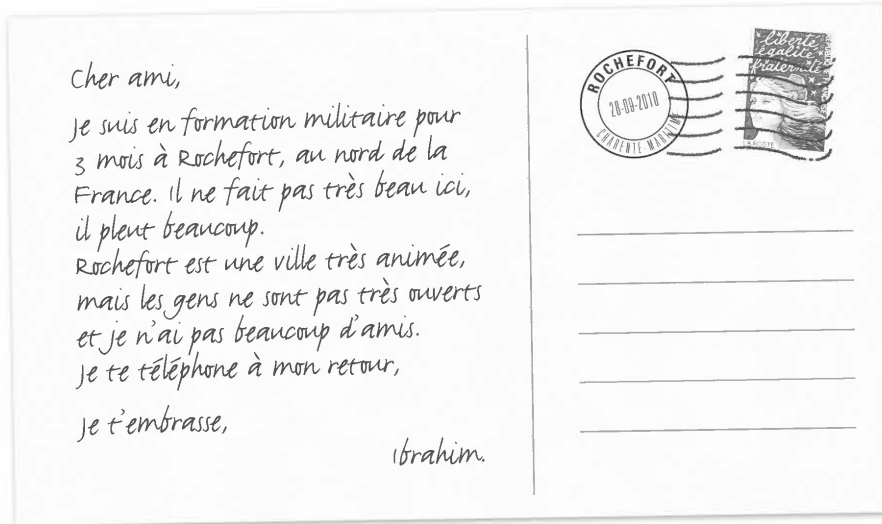 Cher ami,
Je suis en formation militaire pour
3 mois à Rochefort, au nord de la
France. Il ne fait pas très beau ici,
il pleut beaucoup.
Rochefort est une ville très animée,
mais les gens ne sont pas très ouverts
et je n'ai pas beaucoup d'amis.
Je te téléphone à mon retour,
Je t'embrasse,
Ibrahim.
ROCHEFORT
28-09-2010
CHARENTE-MARITIME
liberté
égalité
fraternité
LA POSTE